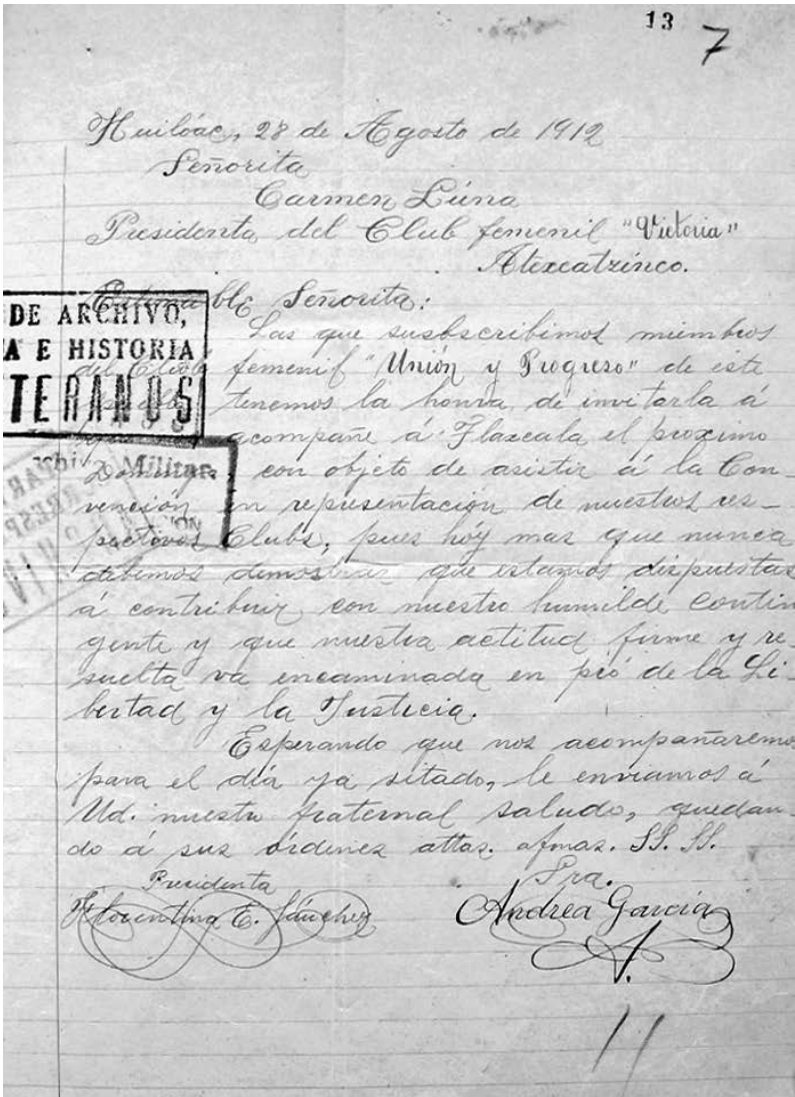 13
7
Huiloác, 28 de Agosto de 1912
Señorita
Carmen Lúna
Presidenta del Club femenil "Victoria"
Atexcatzinco.
Estimable Señorita:
Las que susbscribimos miembros
del Club femenil "Unión y Progreso" de este
tenemos la honra de invitarla á
acompañe á Tlaxcala el proximo
con objeto de asistir á la Con-
vención en representación de nuestros res-
pectivos Clubs, pues hóy mas que nunca
debemos demostrar que estamos dispuestas
á contribuir con nuestro humilde contin
gente y que nuestra actitud firme y re-
suelta va encaminada en pró de la Li-
bertad y la Justicia.
Esperando que nos acompañaremos
para el día ya sitado, le enviamos á
Ud. nuestro fraternal saludo, quedan-
do á sus ordenes attas. afmas. SS. SS.
Presidenta
Florentina E. Sánchez
Sra.
Andrea García
A.
11
DE ARCHIVO,
A E HISTORIA
TERANOS
Militar